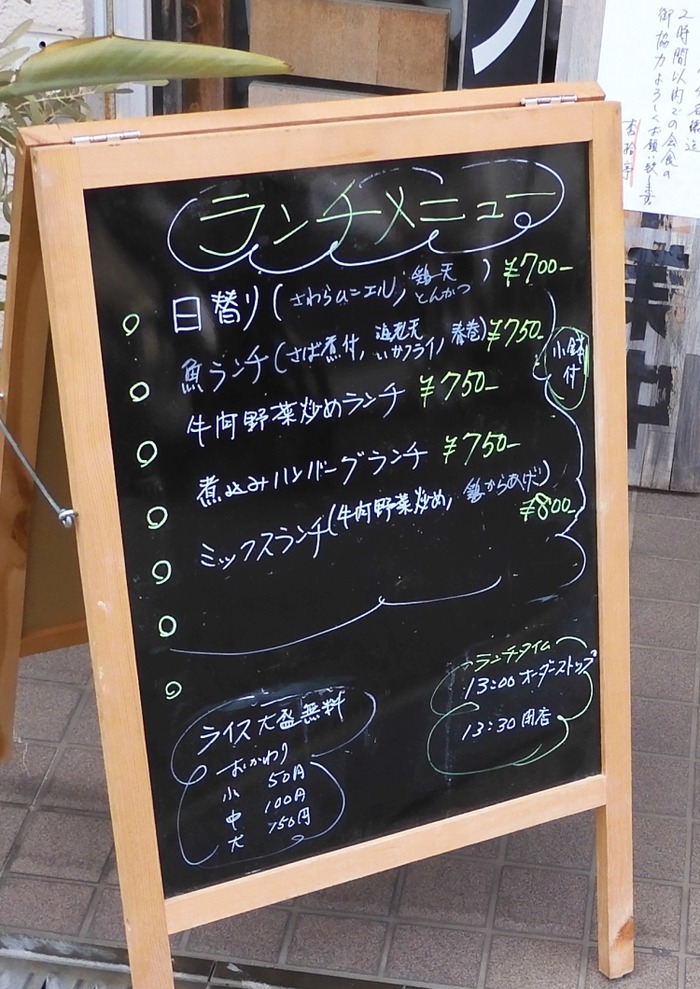 2時間以内での会食の
御協力よろしくお願い致します
ランチメニュー
日替り(さわらムニエル, 鶏天 とんかつ) ¥700-
魚ランチ(さば煮付, 海老天 いかフライ, 春巻) ¥750-
小鉢付
牛肉野菜炒めランチ ¥750-
煮込みハンバーグランチ ¥750-
ミックスランチ(牛肉野菜炒め, 鶏からあげ) ¥800-
ランチタイム
13:00 オーダーストップ
13:30 閉店
ライス大盛無料
おかわり
小 50円
中 100円
大 150円
業中